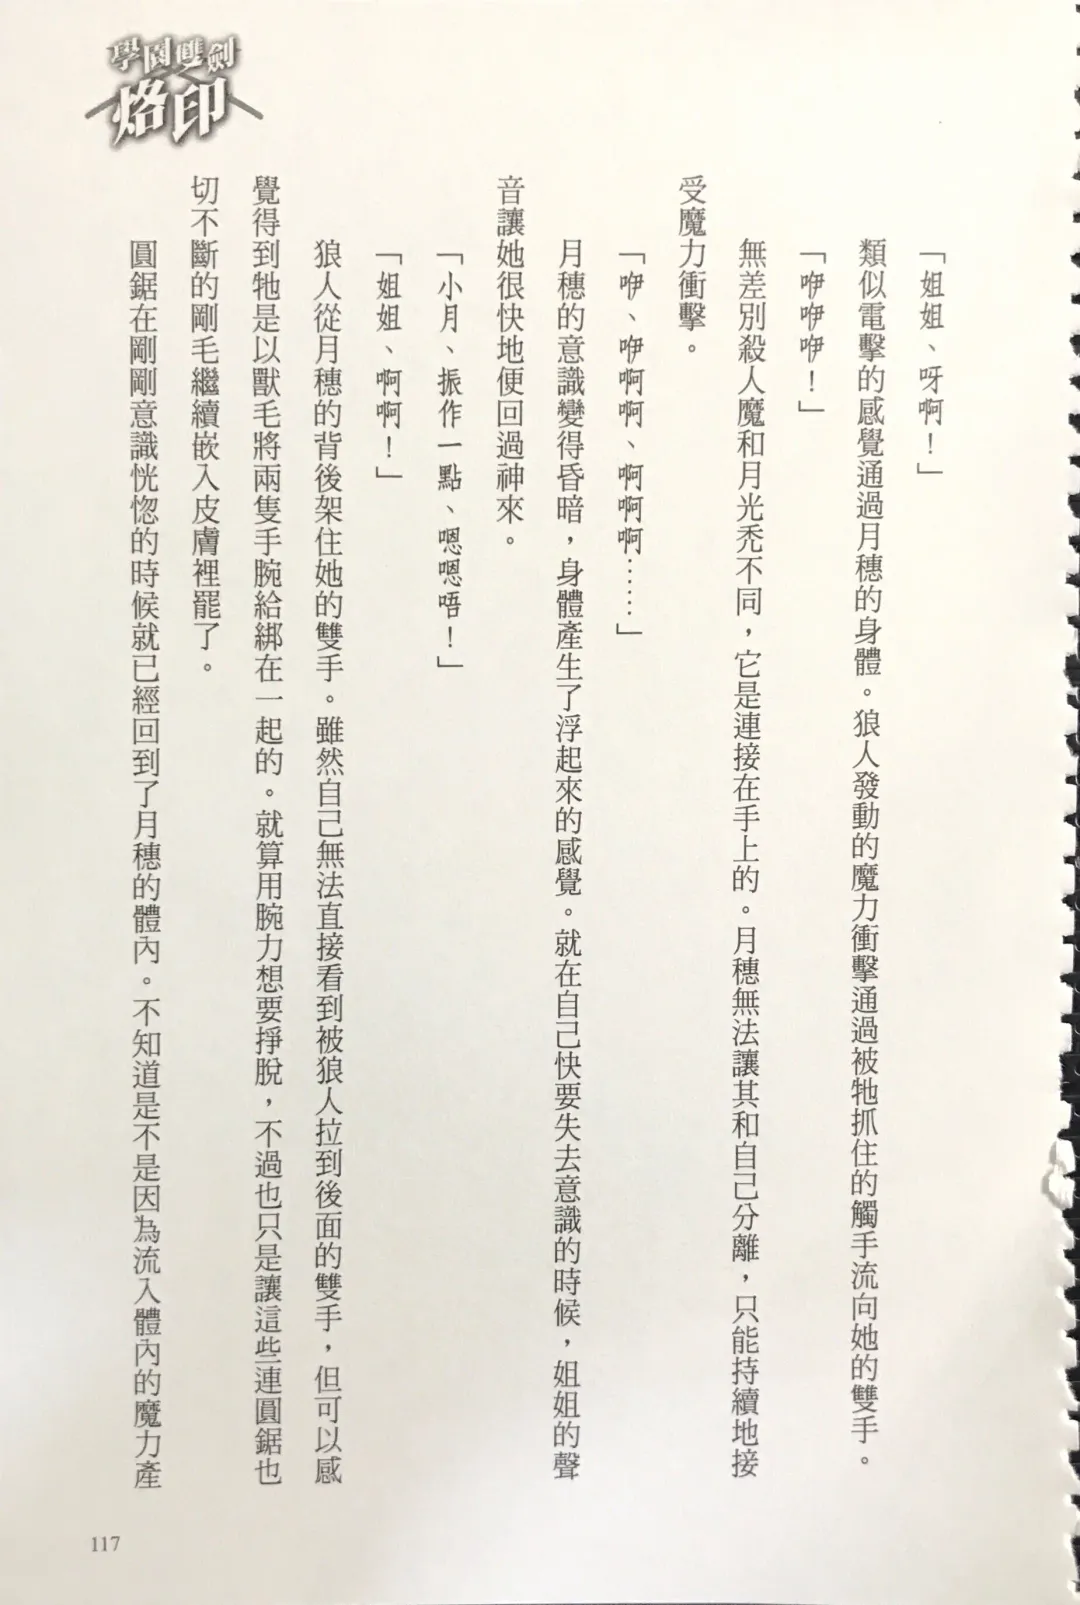 學園雙劍
烙印
「姐姐、呀啊！」
類似電擊的感覺通過月穗的身體。狼人發動的魔力衝擊通過被牠抓住的觸手流向她的雙手。
「咿咿咿！」
無差別殺人魔和月光禿不同，它是連接在手上的。月穗無法讓其和自己分離，只能持續地接
受魔力衝擊。
「咿、咿啊啊、啊啊啊……」
月穗的意識變得昏暗，身體產生了浮起來的感覺。就在自己快要失去意識的時候，姐姐的聲
音讓她很快地便回過神來。
「小月、振作一點、嗯嗯唔！」
「姐姐、啊啊！」
狼人從月穗的背後架住她的雙手。雖然自己無法直接看到被狼人拉到後面的雙手，但可以感
覺得到牠是以獸毛將兩隻手腕給綁在一起的。就算用腕力想要掙脫，不過也只是讓這些連圓鋸也
切不斷的剛毛繼續嵌入皮膚裡罷了。
圓鋸在剛剛意識恍惚的時候就已經回到了月穗的體內。不知道是不是因為流入體內的魔力產
117